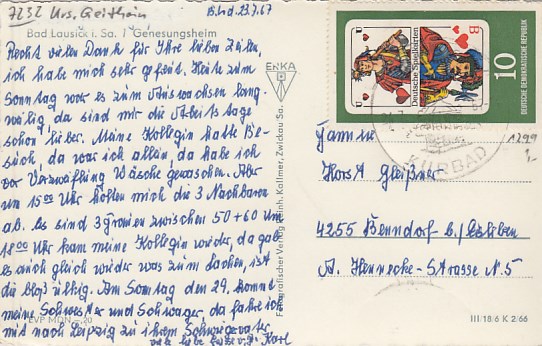 7232 Krs. Geithain
B.L.d. 23.7.67
Bad Lausick i. Sa. / Genesungsheim
Recht vielen Dank für Ihre lieben Zeilen,
ich habe mich sehr gefreut. Heute zum
Sonntag war es zum Auswachsen lang-
weilig, da sind mir die Arbeitstage
schon lieber. Meine Kollegin hatte Be-
such, da war ich allein, da habe ich
vor Verzweiflung Wäsche gewaschen. Aber
um 15 00 Uhr holten mich die 3 Nachbaren
ab. Es sind 3 Frauen zwischen 50 + 60 um
18 00 Uhr kam meine Kollegin wieder, da gab
es auch gleich wieder was zum lachen, ist
die bloß ulkig. Am Sonntag den 29. kommt
meine Schwester und Schwager, da fahre ich
mit nach Leipzig zu ihrem Schwiegervater
Karl
EVP MDN –.20
ERKA
Fotografischer Verlag Rich. Kallmer, Zwickau Sa.
Deutsche Spielkarten
U
B
10
DEUTSCHE DEMOKRATISCHE REPUBLIK
KURBAD
1299
Horst Gleißner
4255 Benndorf b./Eisleben
A. Hennecke-Strasse N. 5
III/18/6 K 2/66